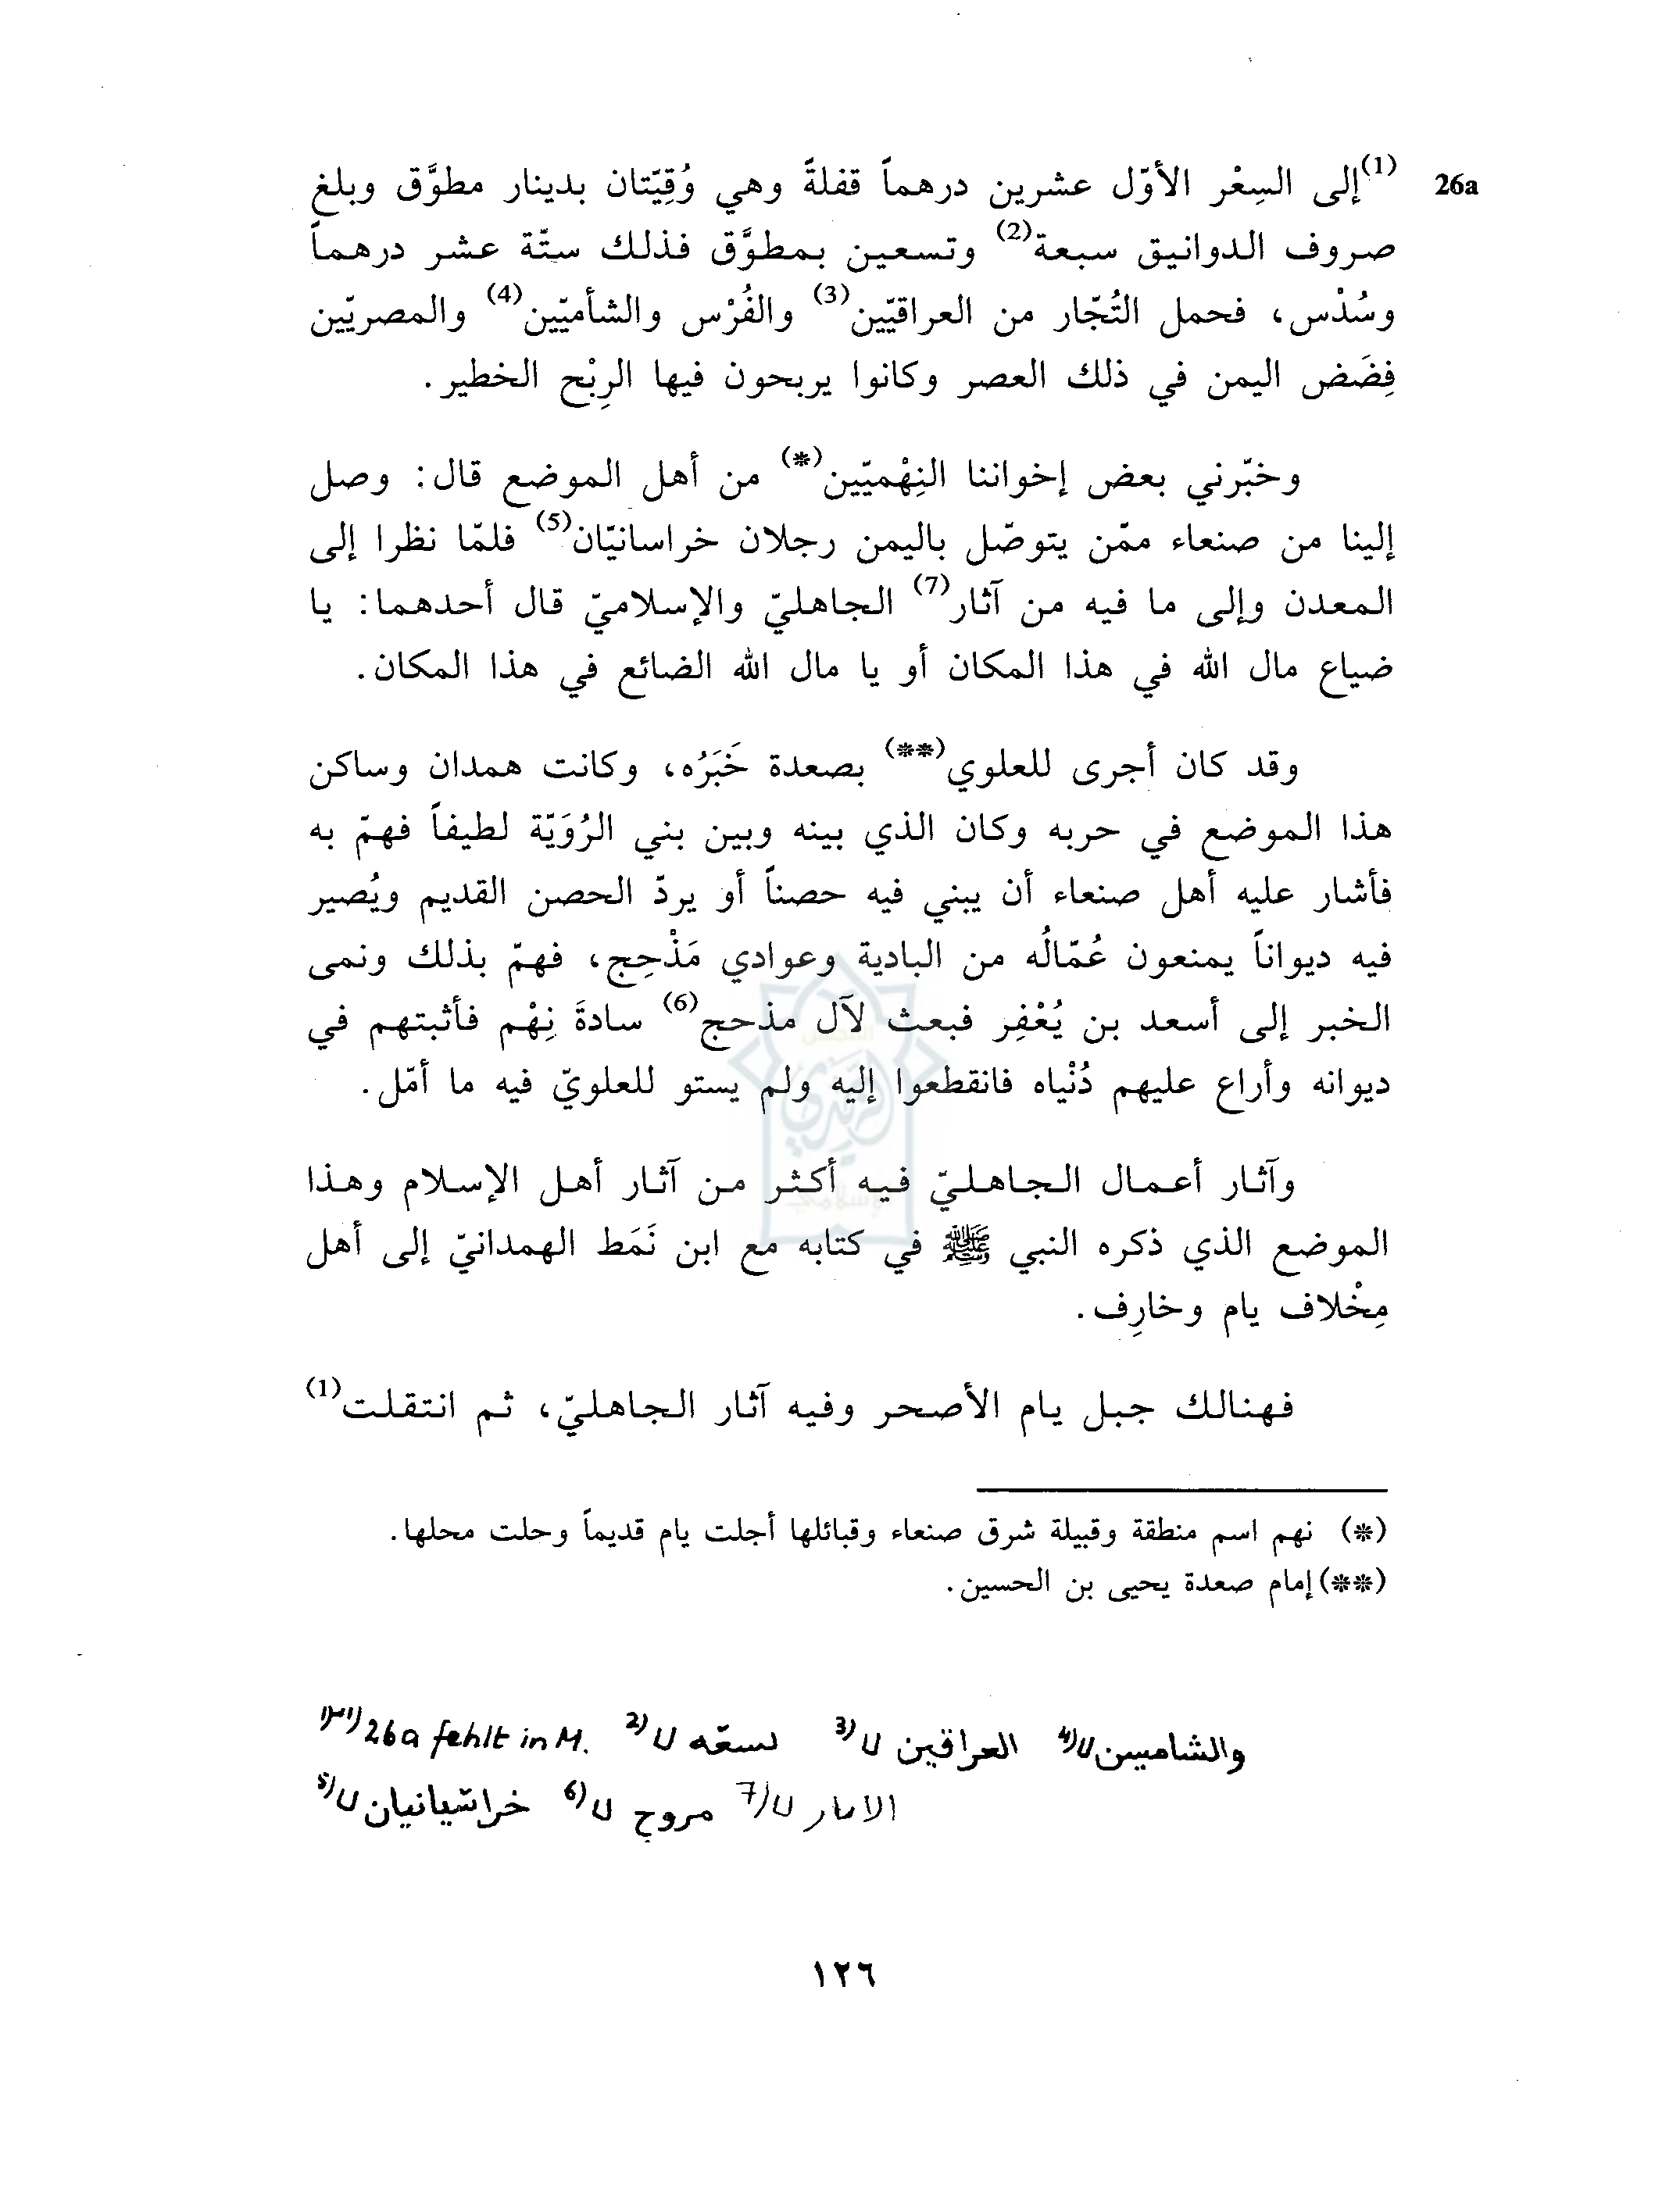 26a (1)إلى السِعْر الأوّل عشرين درهماً قفلةً وهي وُقِيّتان بدينار مطوَّق وبلغ
صروف الدوانيق سبعة(2) وتسعين بمطوَّق فذلك ستّة عشر درهماً
وسُدْس، فحمل التُجّار من العراقيّين(3) والفُرْس والشأميّين(4) والمصريّين
فِضَض اليمن في ذلك العصر وكانوا يربحون فيها الرِبْح الخطير.
وخبّرني بعض إخواننا النِهْميّين(*) من أهل الموضع قال: وصل
إلينا من صنعاء ممّن يتوصّل باليمن رجلان خراسانيّان(5) فلمّا نظرا إلى
المعدن وإلى ما فيه من آثار(7) الجاهليّ والإسلاميّ قال أحدهما: يا
ضياع مال الله في هذا المكان أو يا مال الله الضائع في هذا المكان.
وقد كان أجرى للعلوي(**) بصعدة خَبَرُه، وكانت همدان وساكن
هذا الموضع في حربه وكان الذي بينه وبين بني الرُوَيّة لطيفاً فهمّ به
فأشار عليه أهل صنعاء أن يبني فيه حصناً أو يردّ الحصن القديم ويُصير
فيه ديواناً يمنعون عُمّالُه من البادية وعوادي مَذْحِج، فهمّ بذلك ونمى
الخبر إلى أسعد بن يُعْفِر فبعث لآل مذحج(6) سادةَ نِهْم فأثبتهم في
ديوانه وأراع عليهم دُنْياه فانقطعوا إليه ولم يستو للعلويّ فيه ما أمّل.
وآثار أعمال الجاهليّ فيه أكثر من آثار أهل الإسلام وهذا
الموضع الذي ذكره النبي ﷺ في كتابه مع ابن نَمَط الهمدانيّ إلى أهل
مِخْلاف يام وخارِف.
فهنالك جبل يام الأصحر وفيه آثار الجاهليّ، ثم انتقلت(1)
(*) نهم اسم منطقة وقبيلة شرق صنعاء وقبائلها أجلت يام قديماً وحلت محلها.
(**) إمام صعدة يحيى بن الحسين.
26a fehlt in M. 2) U لسعّه 3) U العراقين 4) U والشاميين
5) U خراشيانيان 6) U مروح 7) U الاىار
١٢٦